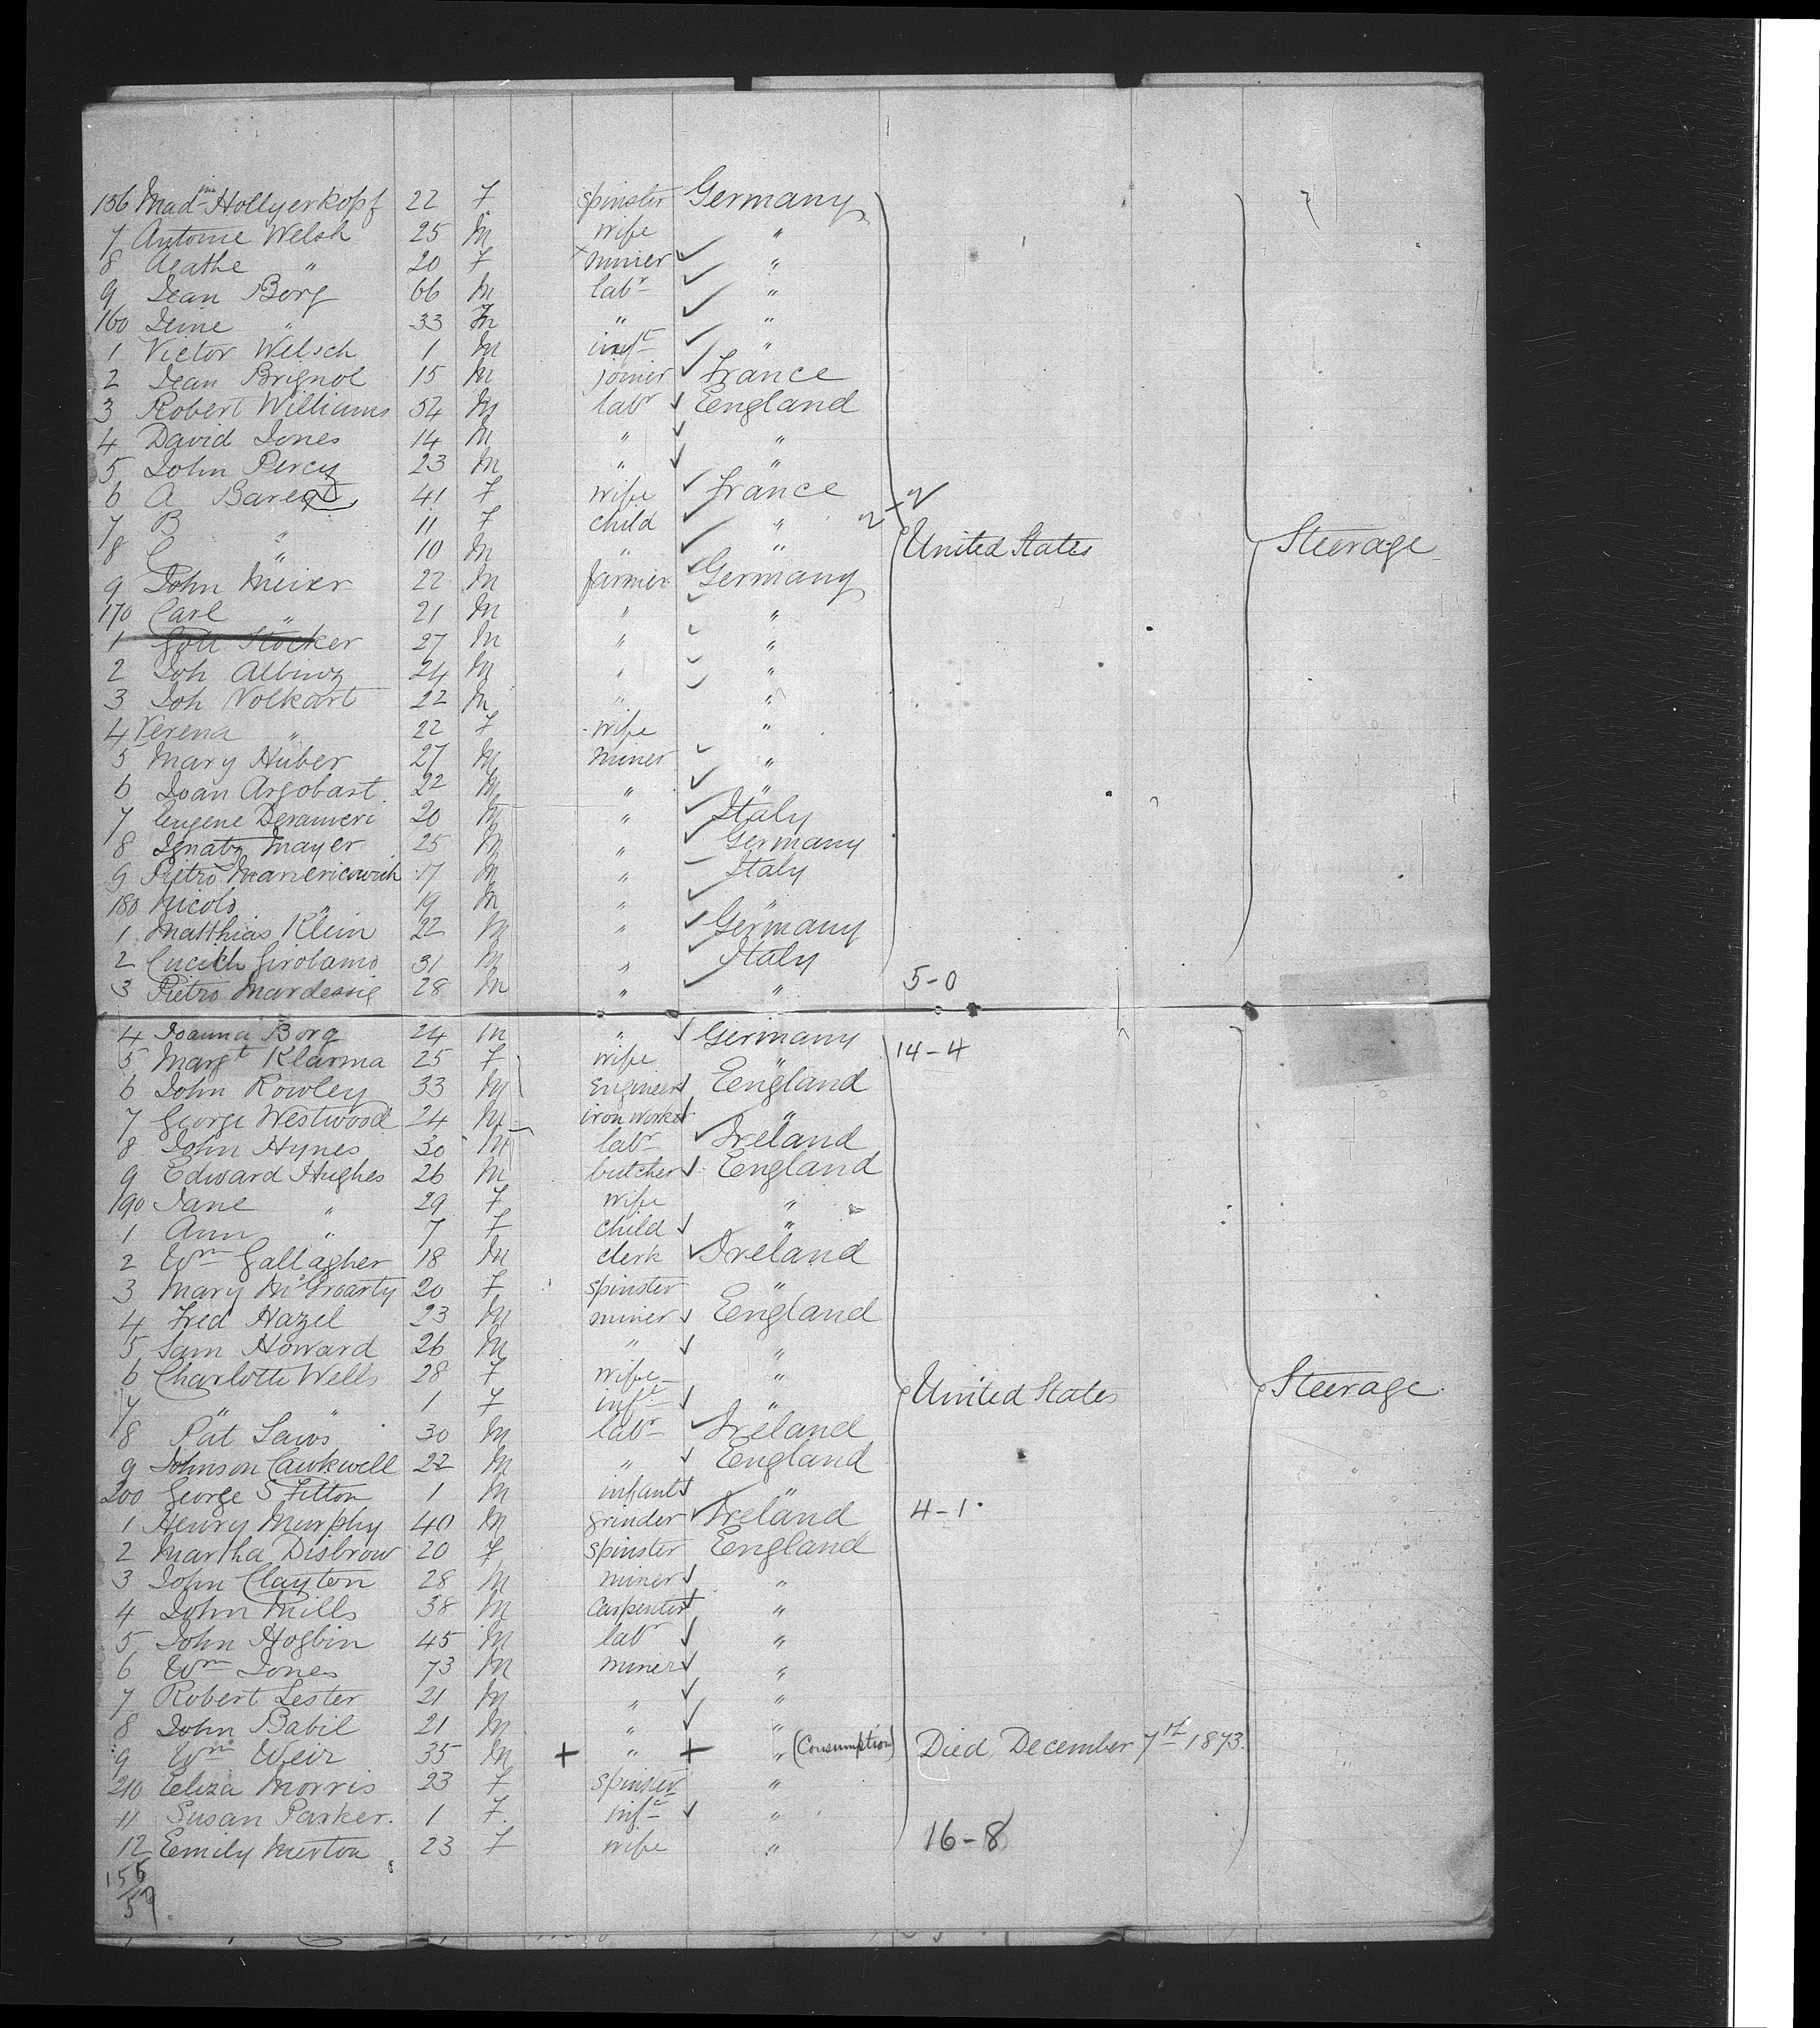 156 Mad Hollyerkopf 22 F spinster Germany
7 Antoine Welsh 25 M wife "
8 Agathe " 20 F minier "
9 Jean Borg 66 M labr "
160 " 33 " "
1 Victor Welsch 1 M inft "
2 Jean Brignol 15 M joiner France
3 Robert Williams 54 M labr England
4 David Jones 14 M " "
5 John Percy 23 M " "
6 A 41 F wife France
7 B " 11 F child "
8 C " 10 M " " United States Steerage
9 John Meier 22 M farmer Germany
170 Carl " 21 M " "
1 Gott Stocker 27 M " "
2 Joh Albinz 24 M " "
3 Joh Volkart 22 M " "
4 Verena " 22 F wife "
5 Mary Huber 27 M miner "
6 Joan Argobast 22 M " "
7 Eugene 20 M " Italy
8 Ignatz Mayer 25 M " Germany
9 Pietro 17 M " Italy
180 Nicolo " 19 M " "
1 Matthias Klein 22 M " Germany
2 Girolamo 31 M " Italy
3 Pietro 28 M " " 5-0
4 Joanna Borg 24 M " Germany
5 Margt Klarma 25 F wife " 14-4
6 John Rowley 33 M Engineer England
7 George Westwood 24 M iron worker "
8 John Hynes 30 M labr Ireland
9 Edward Hughes 26 M butcher England
190 Jane " 29 F wife "
1 Ann " 7 F child "
2 Wm Gallagher 18 M clerk Ireland
3 Mary McGroarty 20 F spinster "
4 Fred Hazel 23 M miner England
5 Sam Howard 26 M " "
6 Charlotte Wells 28 F wife "
7 " " 1 F inft " United States Steerage
8 Pat 30 M labr Ireland
9 Johnson Cawkwell 22 M " England
200 George S Fitton 1 M infant "
1 Henry Murphy 40 M grinder Ireland 4-1
2 Martha Disbrow 20 F spinster England
3 John Clayton 28 M miner "
4 John Mills 38 M Carpenter "
5 John Hogbin 45 M labr "
6 Wm Jones 73 M miner "
7 Robert Lester 21 M " "
8 John Babil 21 M " "
9 Wm Weir 35 M + " + " (Consumption) Died December 7th 1873.
210 Eliza Morris 23 F spinster "
11 Susan Parker. 1 F inft "
12 Emily Murton 23 F wife " 16-8
156